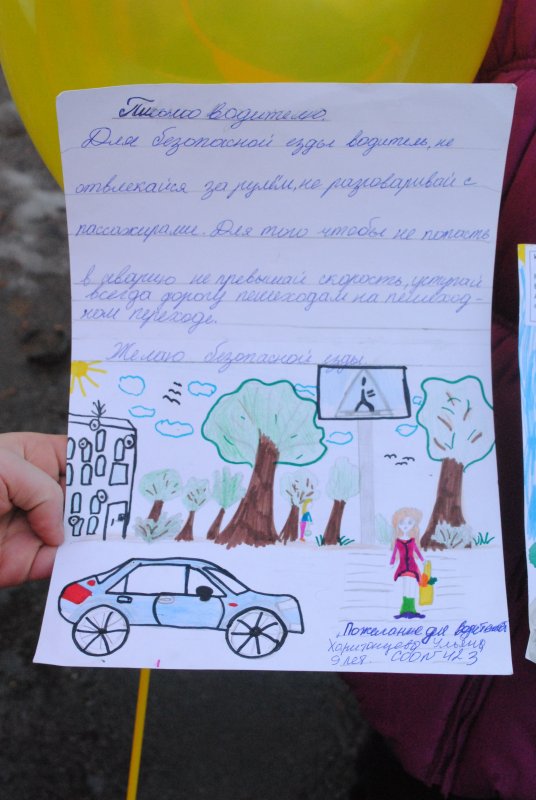 Письмо водителю.
Для безопасной езды водитель, не
отвлекайся за рулём, не разговаривай с
пассажирами. Для того чтобы не попасть
в аварию не превышай скорость, уступай
всегда дорогу пешеходам на пешеход-
ном переходе.
Желаю безопасной езды.
Пожелание для
Ульяна
9 лет. СОО№423